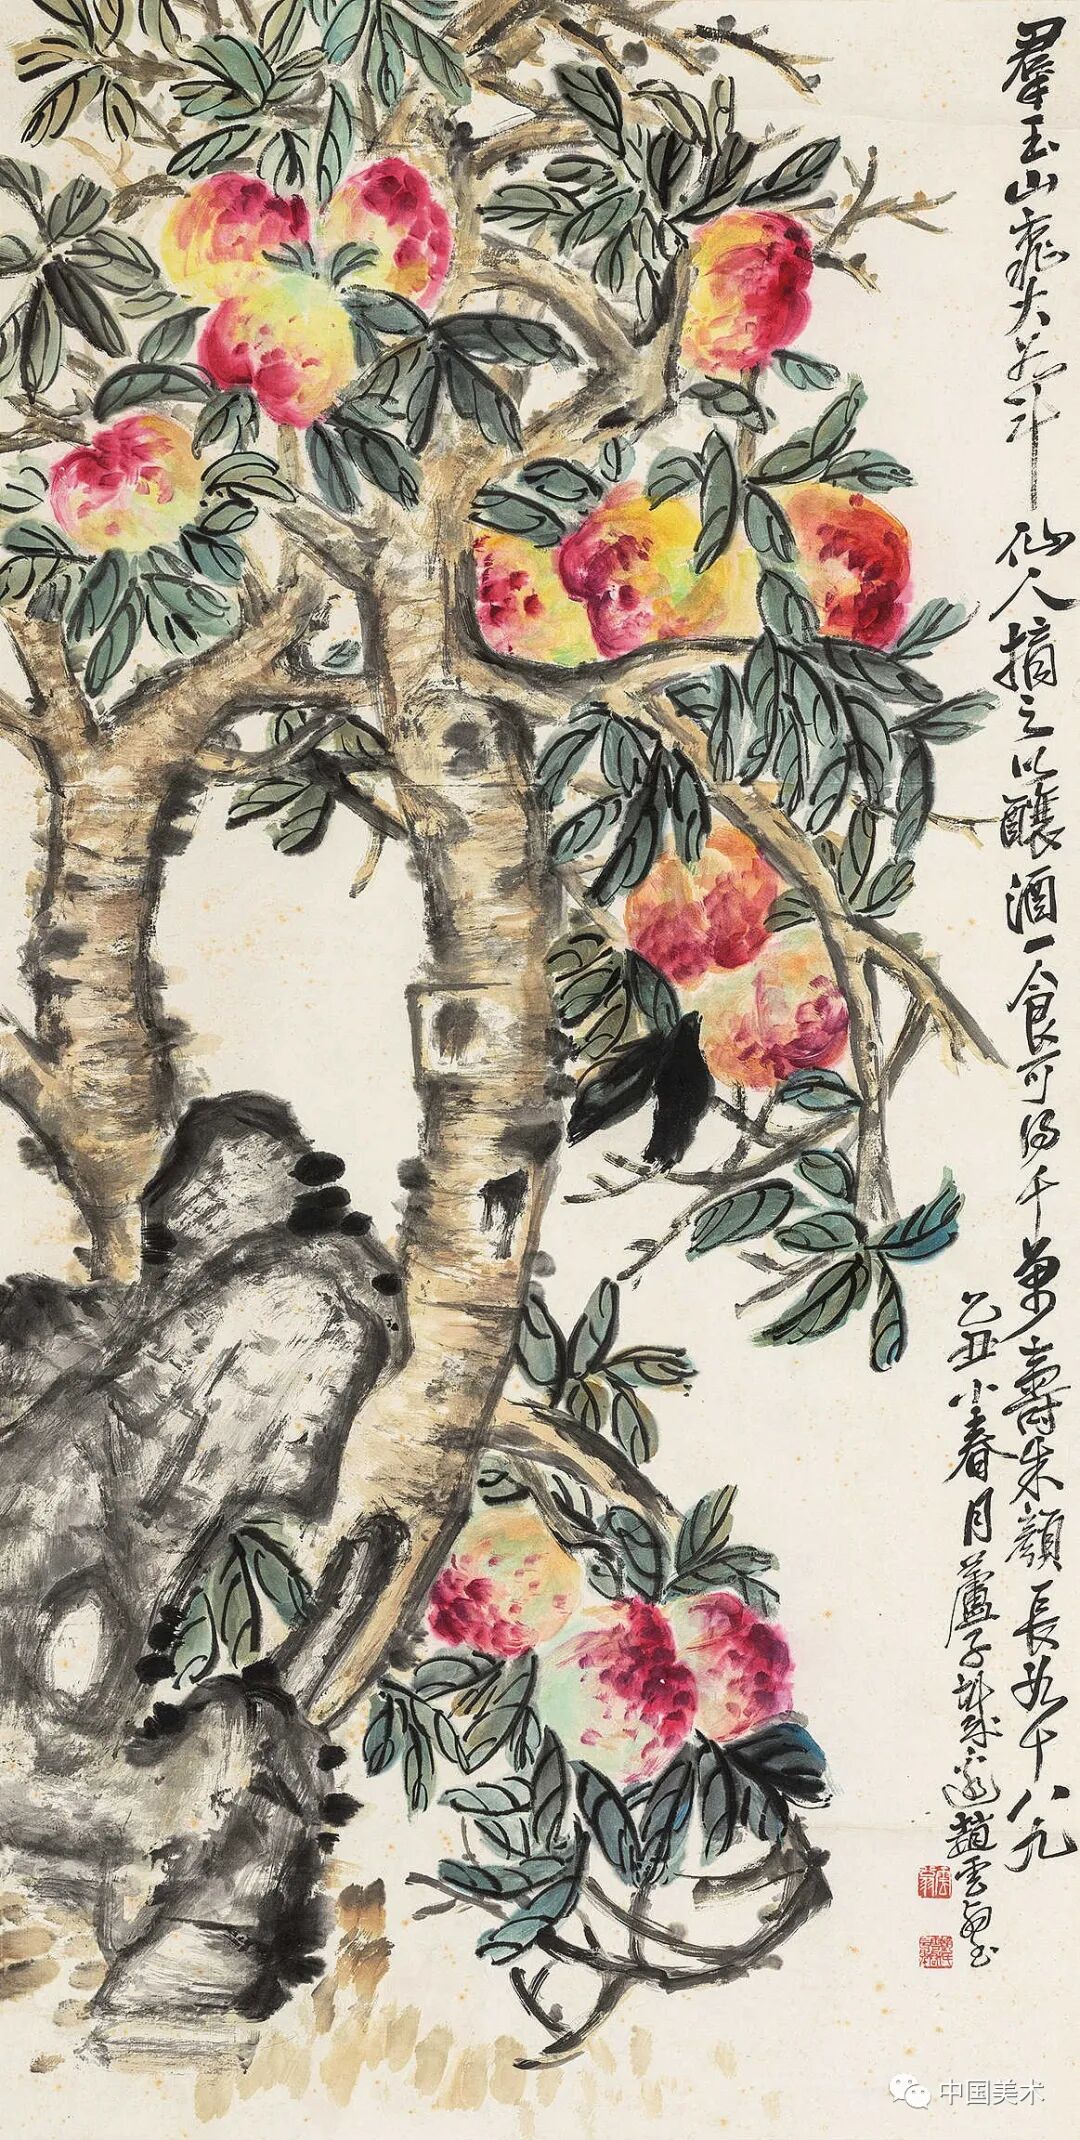 羣玉山桃大若斗仙人摘之以釀酒一食可得千萬壽朱顏長如十八九
乙丑小春月蘆子城
趙雲壑
中国美术